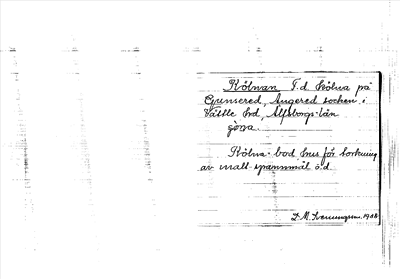 Kölnan F.d. kölna på
Gunnered, Angered socken i
Vättle hd, Älfsborgs län
Kölna - bod hus för torkning
av malt spannmål o.d.
1908